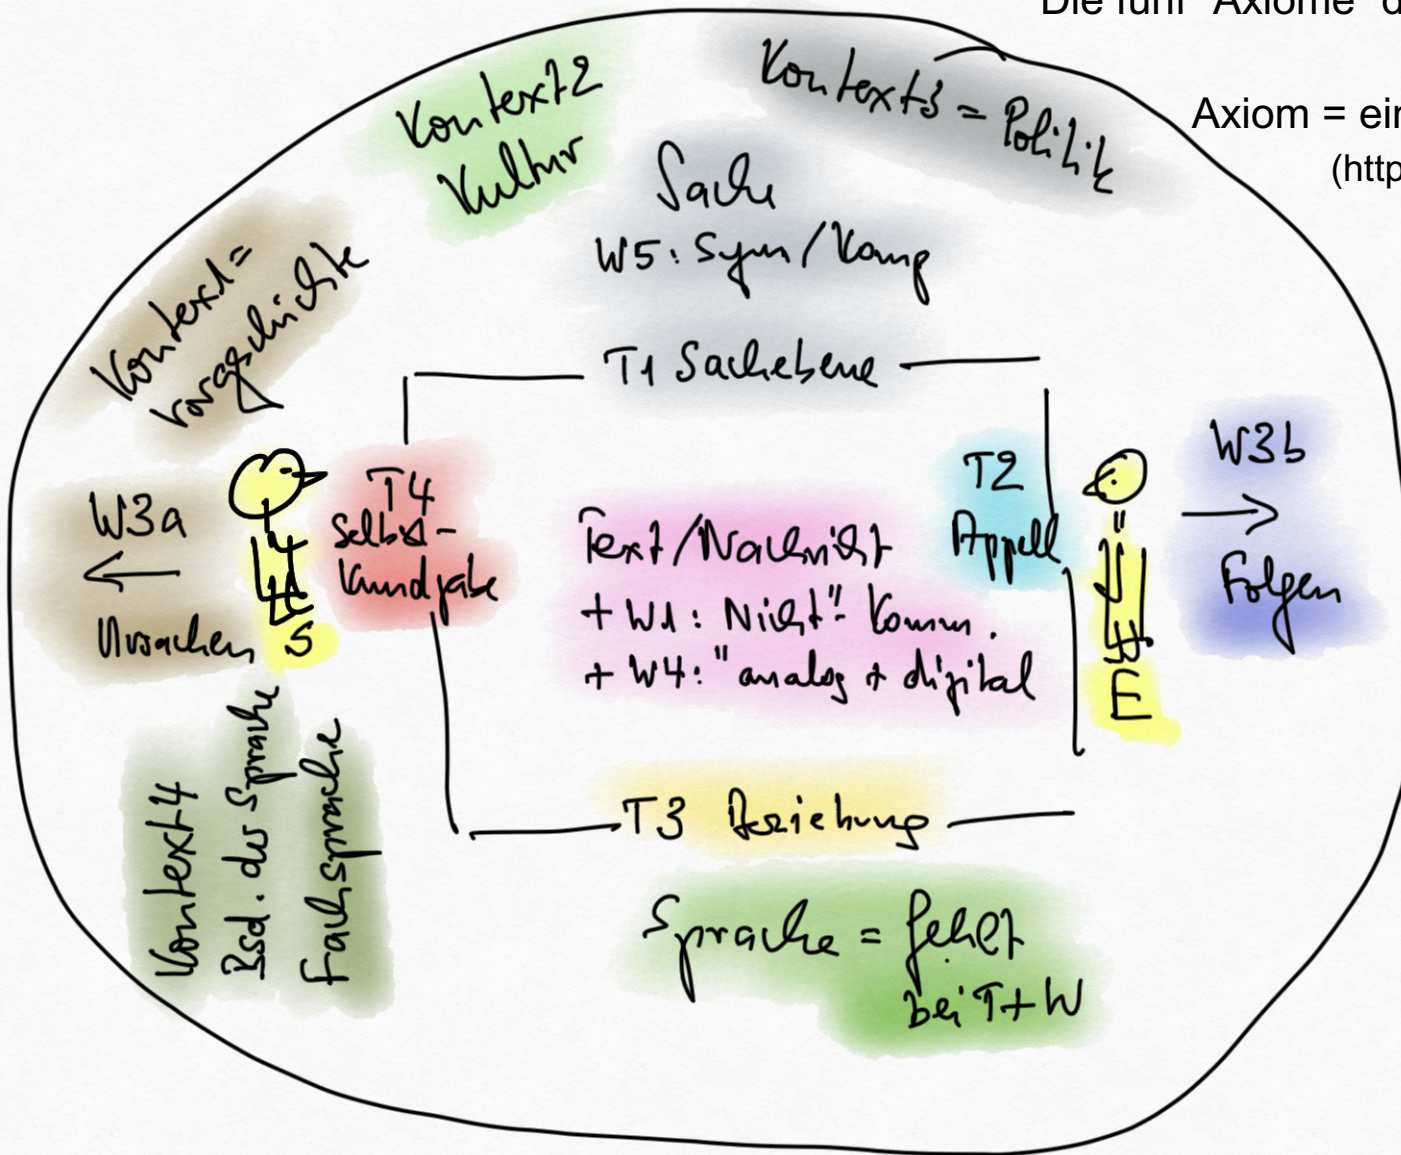 Die fünf "Axiome" d
Axiom = ein
(http
Kontext2
Kultur
Kontext3 = Politik
Sache
W5: Sym/Komp
Kontext1=
Vorgeschichte
T1 Sachebene
W3a
Ursachen
S
T4
Selbst-
Kundgabe
Text/Nachricht
+ W1: Nicht"-Komm.
+ W4: "analog + digital
T2
Appell
E
W3b
Folgen
T3 Beziehung
Kontext4
Bsd. der Sprache
Fachsprache
Sprache = fehlt
bei T+W